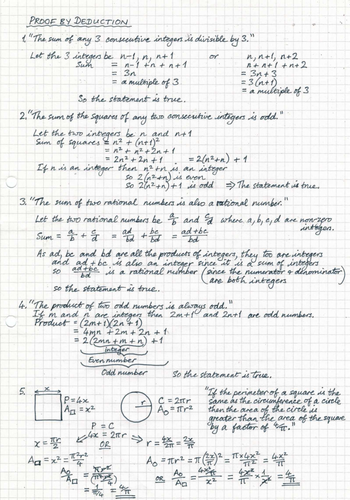 PROOF BY DEDUCTION
1. "The sum of any 3 consecutive integers is divisible by 3."
Let the 3 integers be n-1, n, n+1 or n, n+1, n+2
Sum = n-1 + n + n+1 n + n+1 + n+2
= 3n = 3n+3
= a multiple of 3 = 3(n+1)
= a multiple of 3
So the statement is true.
2. "The sum of the squares of any two consecutive integers is odd."
Let the two integers be n and n+1
Sum of squares = n² + (n+1)²
= n² + n² + 2n + 1
= 2n² + 2n + 1 = 2(n²+n) + 1
If n is an integer then n²+n is an integer
so 2(n²+n) is even
so 2(n²+n)+1 is odd ⇒ The statement is true.
3. "The sum of two rational numbers is also a rational number."
Let the two rational numbers be a/b and c/d where a, b, c, d are non-zero integers.
Sum = a/b + c/d = ad/bd + bc/bd = ad+bc/bd
As ad, bc and bd are all the products of integers, they too are integers
and ad+bc is also an integer since it is a sum of integers
so ad+bc/bd is a rational number (since the numerator & denominator are both integers)
so the statement is true.
4. "The product of two odd numbers is always odd."
If m and n are integers then 2m+1 and 2n+1 are odd numbers.
Product = (2m+1)(2n+1)
= 4mn + 2m + 2n + 1
= 2(2mn + m + n) + 1
Integer
Even number
Odd number So the statement is true.
5. x P = 4x A□ = x² r C = 2πr A○ = πr²
"If the perimeter of a square is the
same as the circumference of a circle
then the area of the circle is
greater than the area of the square
by a factor of 4/π."
P = C
4x = 2πr
x = πr/2 OR r = 4x/2π = 2x/π
A□ = x² = π²r²/4 A○ = πr² = π(2x/π)² = π×4x²/π² = 4x²/π
A○/A□ = πr²/(π²r²/4) OR A○/A□ = 4x²/π / x² = 4x²/π × 1/x² = 4/π
= 1/(π/4) = 4/π